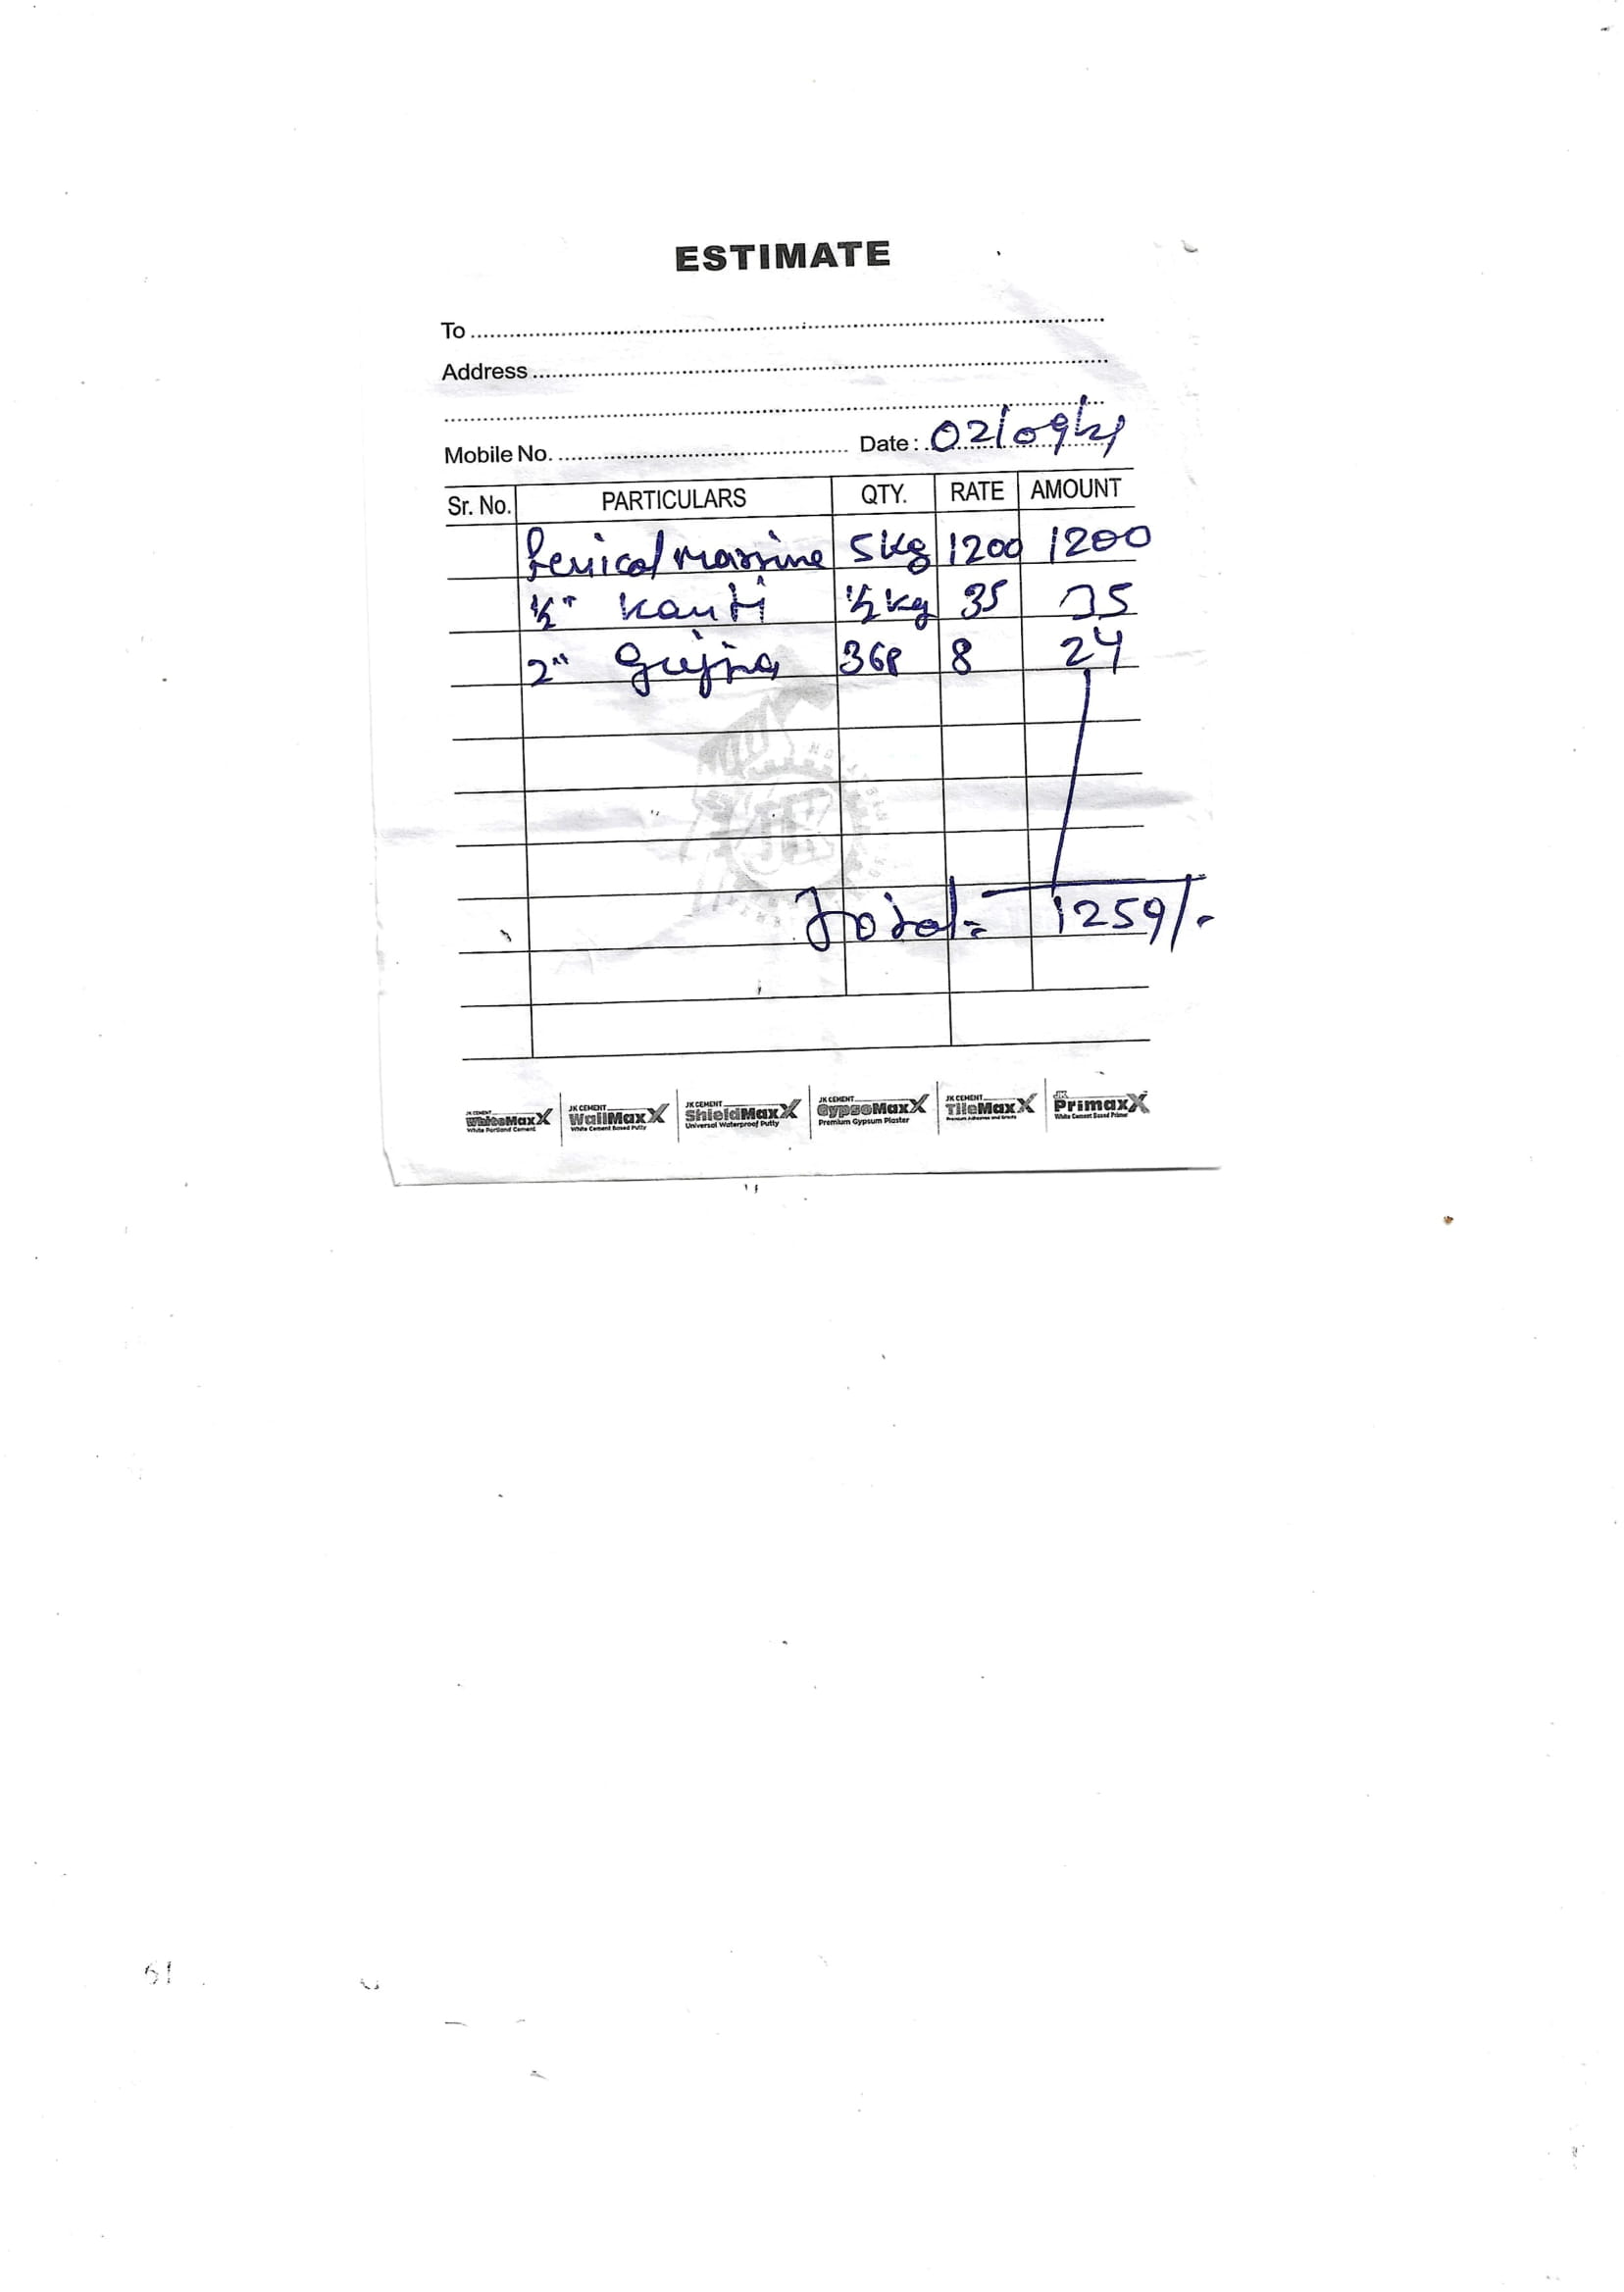 ESTIMATE
To
Address
Mobile No. Date: 02/09/21
Sr. No. PARTICULARS QTY. RATE AMOUNT
Fevicol Marrine 5kg 1200 1200
1/2" Kanti 1/2 kg 35 35
2" 8 24
Total = 1259/-
JK CEMENT WhiteMaxX White Portland Cement
JK CEMENT WallMaxX White Cement Based Putty
JK CEMENT ShieldMaxX Universal Waterproof Putty
JK CEMENT GypsoMaxX Premium Gypsum Plaster
JK CEMENT TileMaxX
JK PrimaxX White Cement Based Primer